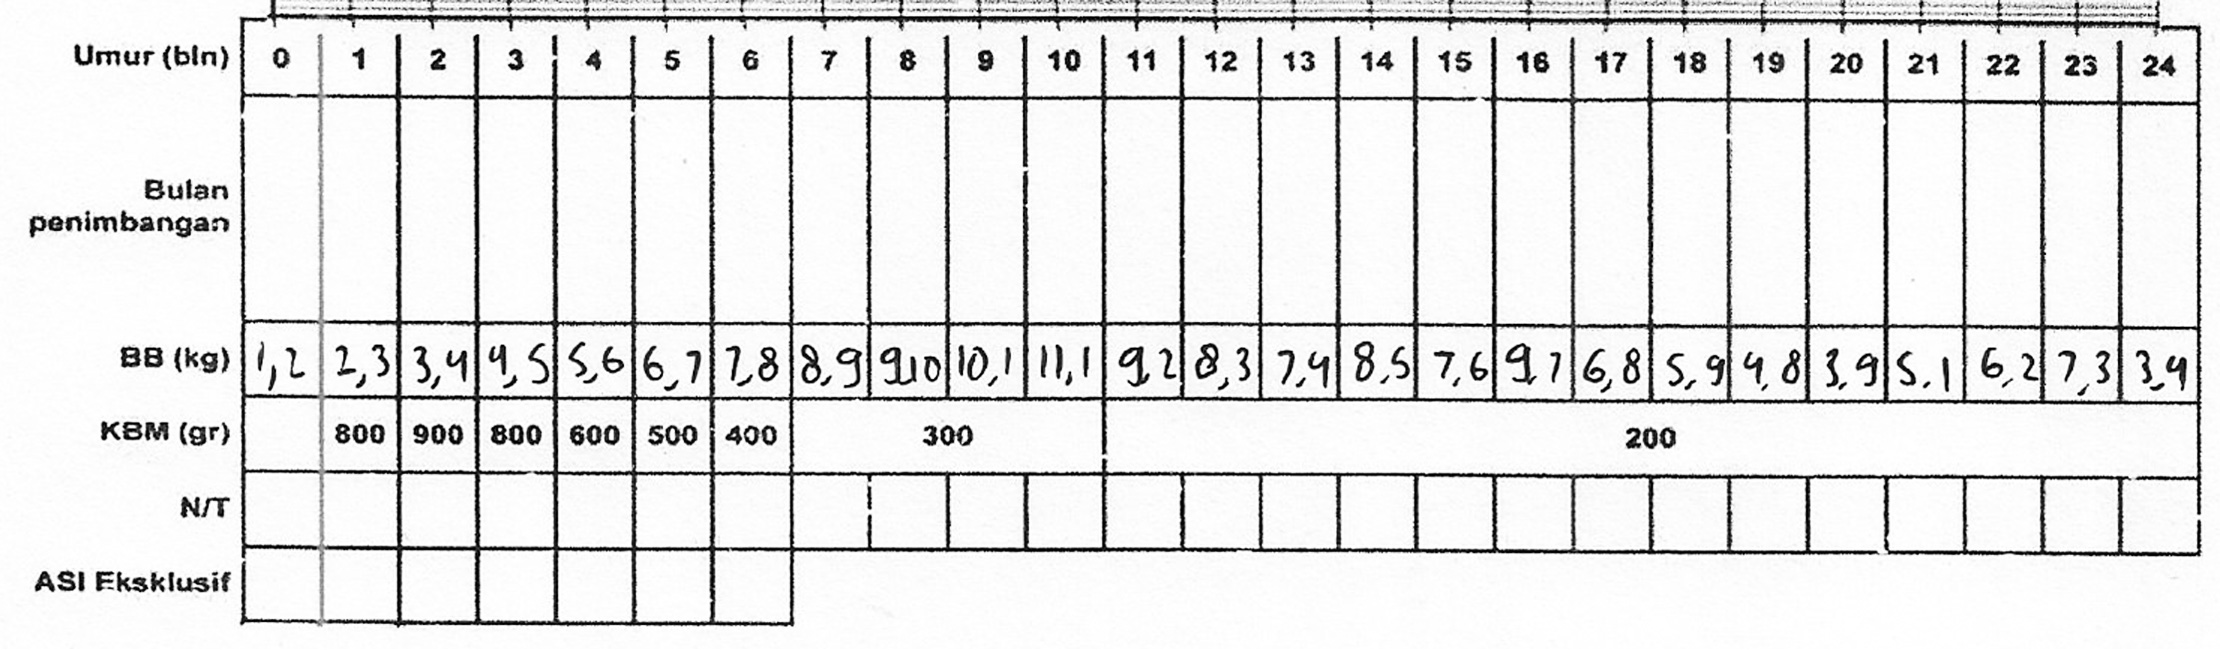 Umur (bln) 0 1 2 3 4 5 6 7 8 9 10 11 12 13 14 15 16 17 18 19 20 21 22 23 24
Bulan
penimbangan
BB (kg) 1,2 2,3 3,4 4,5 5,6 6,7 7,8 8,9 9,10 10,1 11,1 9,2 8,3 7,4 8,5 7,6 9,7 6,8 5,9 4,8 3,9 5.1 6,2 7,3 3,4
KBM (gr) 800 900 800 600 500 400 300 200
N/T
ASI Eksklusif